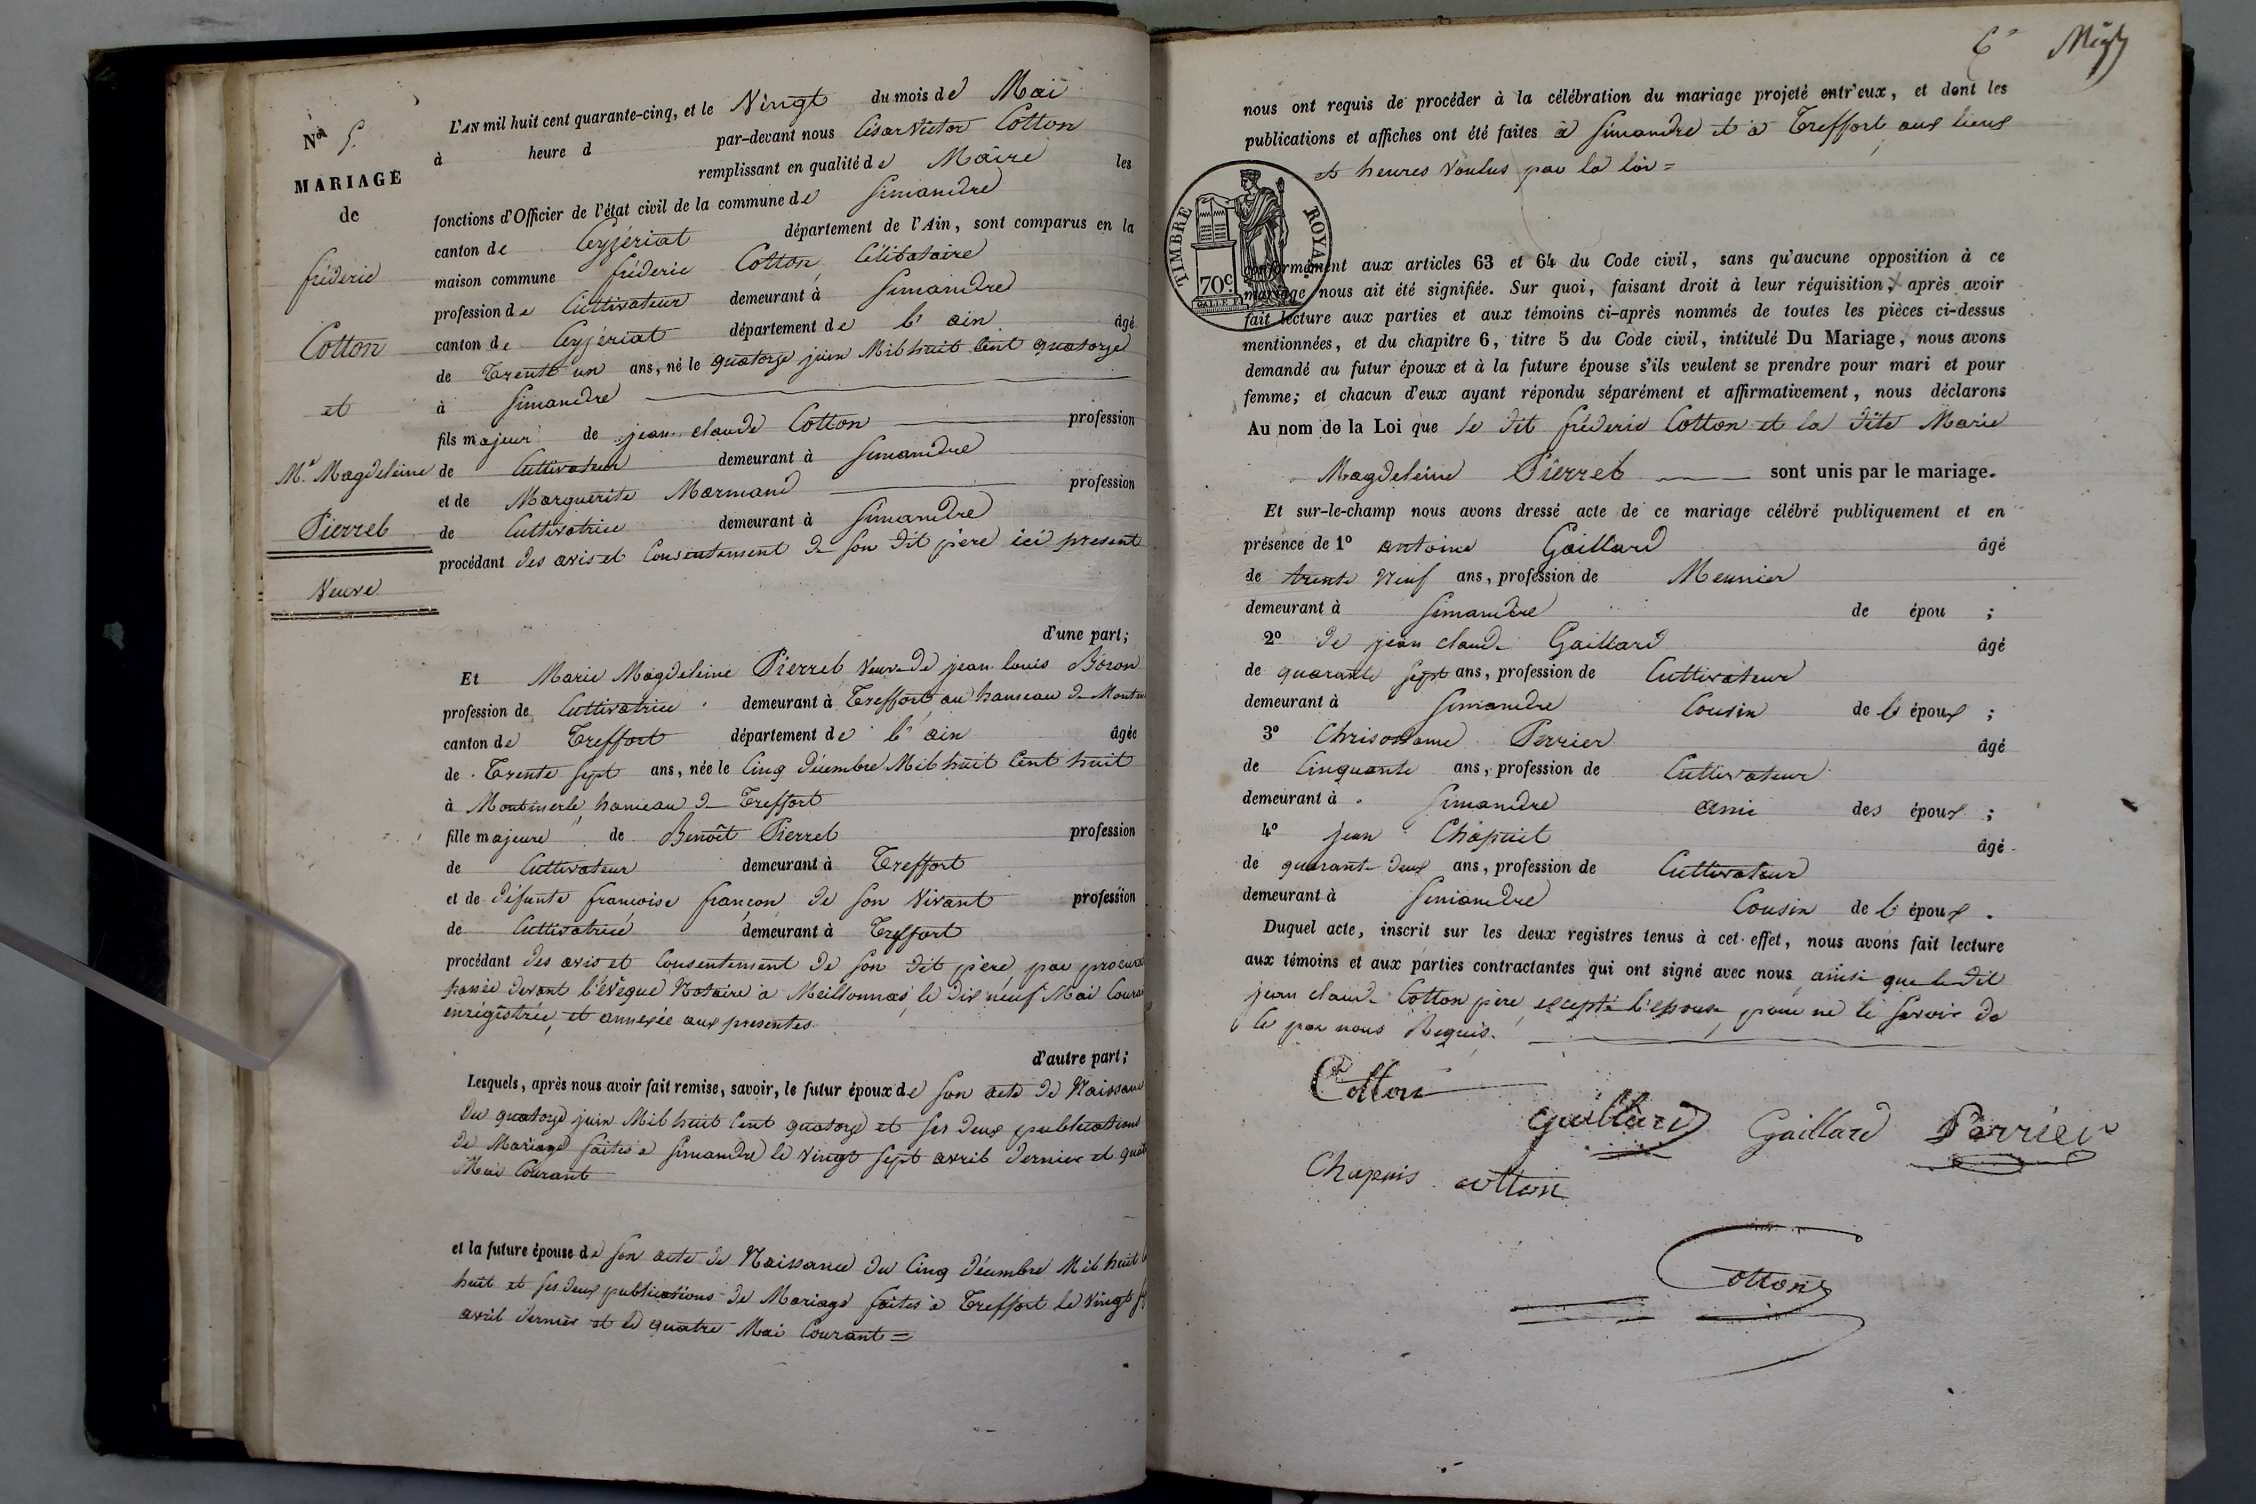 Nº 5.
MARIAGE
de
fréderic
Cotton
et
Mie Magdeleine
Pierrel
Veuve
L'AN mil huit cent quarante-cinq, et le Vingt du mois de Mai
à heure d par-devant nous César Victor Cotton
remplissant en qualité de Maire les
fonctions d'Officier de l'état civil de la commune de Simandre
canton de Ceyzériat département de l'Ain, sont comparus en la
maison commune fréderic Cotton, Célibataire
profession de Cultivateur demeurant à Simandre
canton de Ceyzériat département de l'ain âgé
de Trente un ans, né le quatorze juin Mil huit Cent quatorze
à Simandre
fils majeur de jean claude Cotton profession
de Cultivateur demeurant à Simandre
et de Marguerite Marmand profession
de Cultivatrice demeurant à Simandre
procédant des avis et Consentement de son dit père ici present
d'une part;
Et Marie Magdeleine Pierrel Veuve de jean louis Boron
profession de Cultivatrice demeurant à Treffort au hameau de
canton de Treffort département de l'ain âgée
de Trente sept ans, née le Cinq décembre Mil huit Cent huit
à Montmerle, hameau de Treffort
fille majeure de Benoît Pierrel profession
de Cultivateur demeurant à Treffort
et de défunte françoise françon de son Vivant profession
de Cultivatrice demeurant à Treffort
procédant des avis et Consentement de son dit père, par
passée devant l'évêque Notaire à Meillonnas, le dix neuf Mai
enrégistrée, et annexée aux presentes.
d'autre part;
Lesquels, après nous avoir fait remise, savoir, le futur époux de son acte de
du quatorze juin Mil huit Cent quatorze et ses deux publications
de Mariage faites à Simandre le vingt sept avril dernier et
Mai Courant
et la future épouse de son acte de Naissance du Cinq décembre Mil huit
huit et ses deux publications de Mariage faites à Treffort le Vingt
avril dernier et le quatre Mai Courant =
6
nous ont requis de procéder à la célébration du mariage projeté entr'eux, et dont les
publications et affiches ont été faites à Simandre et à Treffort, aux lieux
et heures Voulus par la loi =
TIMBRE ROYAL
70c.
conformément aux articles 63 et 64 du Code civil, sans qu'aucune opposition à ce
mariage nous ait été signifiée. Sur quoi, faisant droit à leur réquisition, après avoir
fait lecture aux parties et aux témoins ci-après nommés de toutes les pièces ci-dessus
mentionnées, et du chapitre 6, titre 5 du Code civil, intitulé Du Mariage, nous avons
demandé au futur époux et à la future épouse s'ils veulent se prendre pour mari et pour
femme; et chacun d'eux ayant répondu séparément et affirmativement, nous déclarons
Au nom de la Loi que le dit fréderic Cotton et la dite Marie
Magdeleine Pierrel sont unis par le mariage.
Et sur-le-champ nous avons dressé acte de ce mariage célébré publiquement et en
présence de 1º antoine Gaillard âgé
de trente Neuf ans, profession de Meunier
demeurant à Simandre de épou ;
2º de jean claude Gaillard âgé
de quarante sept ans, profession de Cultivateur
demeurant à Simandre Cousin de l'époux ;
3º Chrisostome Perrier âgé
de Cinquante ans, profession de Cultivateur
demeurant à Simandre ami des époux ;
4º jean Chapuit âgé
de quarante deux ans, profession de Cultivateur
demeurant à Simandre Cousin de l'époux .
Duquel acte, inscrit sur les deux registres tenus à cet effet, nous avons fait lecture
aux témoins et aux parties contractantes qui ont signé avec nous, ainsi que le dit
jean claude Cotton père, excepté l'épouse, pour ne le Savoir de
ce par nous Requis.
Cotton
Gaillard Gaillard Perrier
Chapuis cotton
Cotton